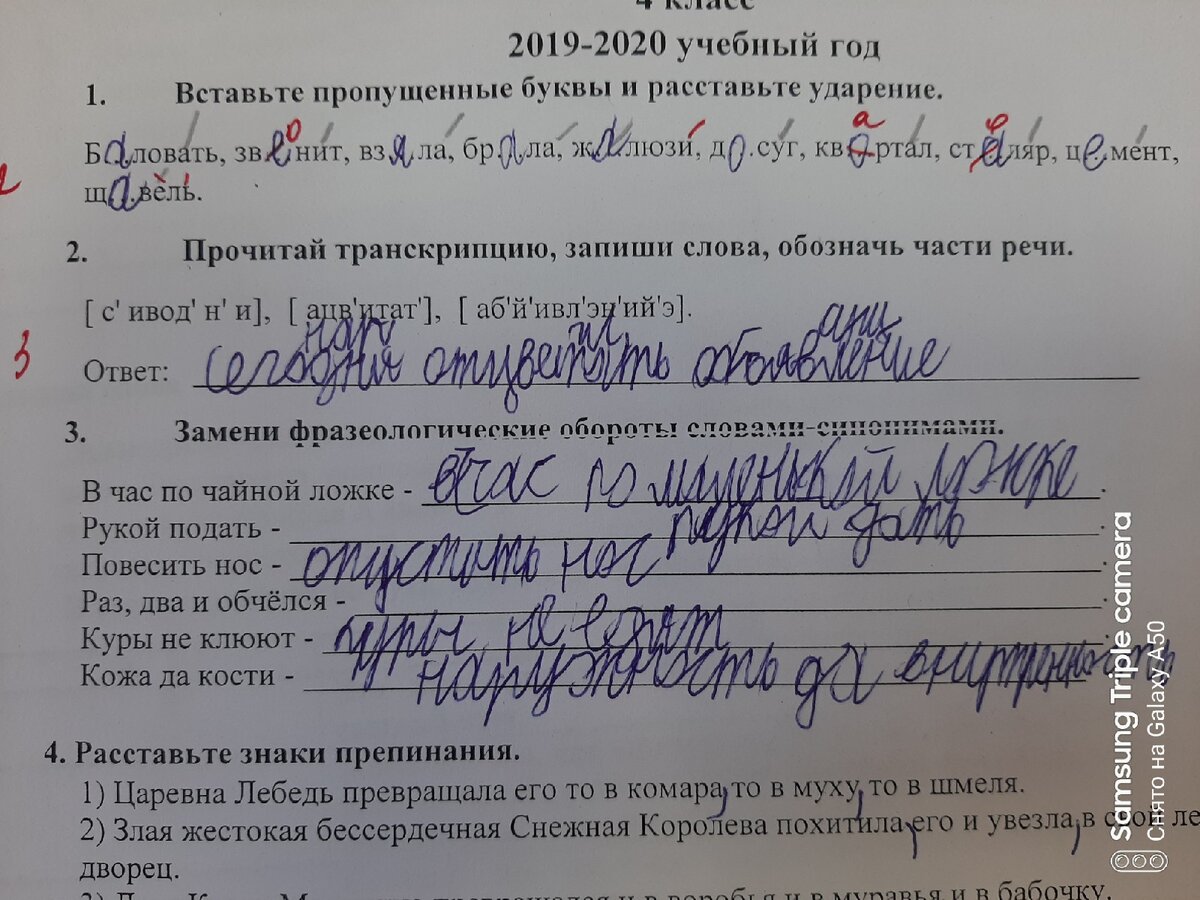 4 класс
2019-2020 учебный год
1. Вставьте пропущенные буквы и расставьте ударение.
Баловать, звенит, взяла, брала, жалюзи, досуг, квортал, сталяр, цемент,
щавель.
2. Прочитай транскрипцию, запиши слова, обозначь части речи.
[ с' ивод' н' и], [ ацв'итат'], [ аб'й'ивл'эн'ий'э].
нар гл
Ответ: сегодня отцветать объявление
3
3. Замени фразеологические обороты словами-синонимами.
В час по чайной ложке - вчас по маленькой ложке.
Рукой подать - рукой дать.
Повесить нос - опустить нос.
Раз, два и обчёлся - .
Куры не клюют - куры не едят.
Кожа да кости - наружность да внутренность
4. Расставьте знаки препинания.
1) Царевна Лебедь превращала его то в комара, то в муху, то в шмеля.
2) Злая жестокая бессердечная Снежная Королева похитила, его и увезла, в свой ле
дворец.
в воробья и в муравья и в бабочку.
Samsung Triple camera
Снято на Galaxy A50